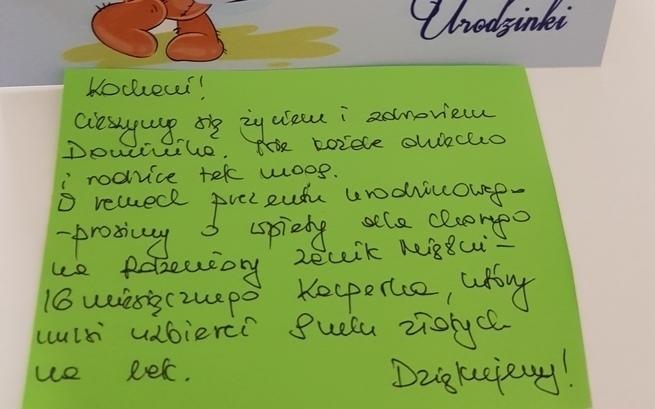 Urodzinki
Kochani!
Cieszymy się życiem i zdrowiem
Dominika. Nie każde dziecko
i rodzice tak mogą.
W ramach prezentu urodzinowego-
-prosimy o wpłaty dla chorego
na Rdzeniowy Zanik Mięśni-
16 miesięcznego Kacperka, który
musi uzbierać 9 mln złotych
na lek. Dziękujemy!